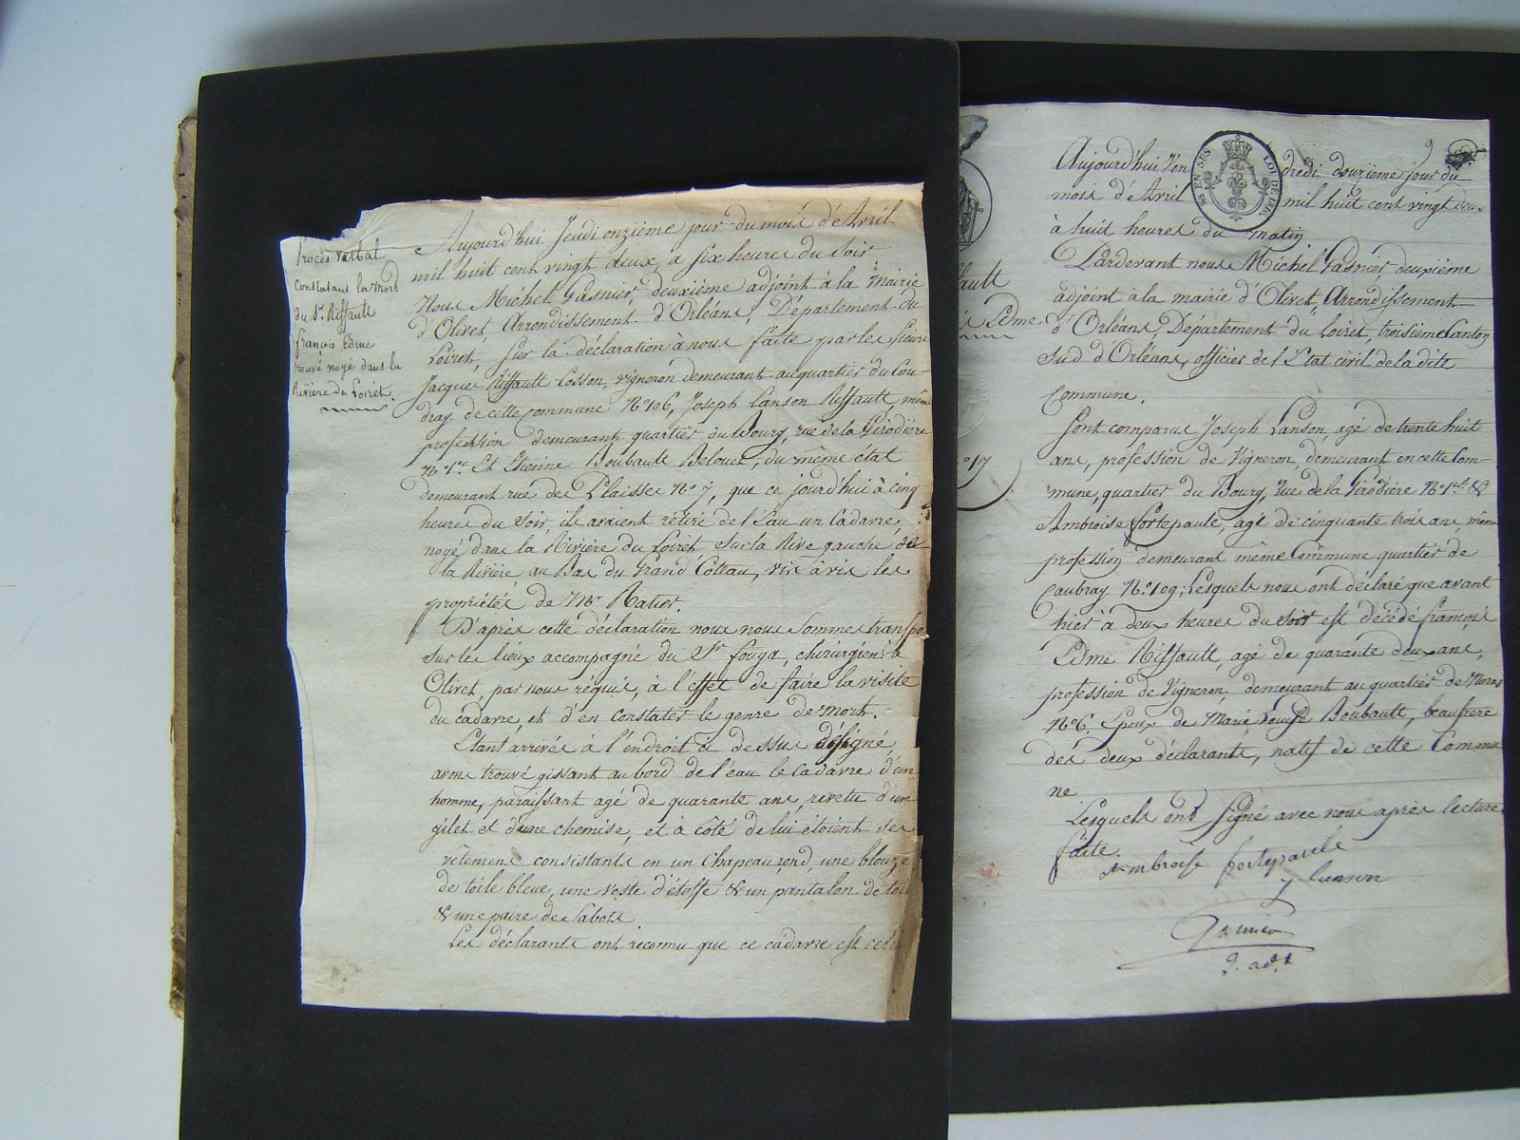 Procès verbal
Constatant la mort
du Sr. Riffault
françois Edme
trouvé noyé dans la
Rivière du Loiret.
Aujourd'hui Jeudi onzieme jour du mois d'Avril
mil huit cent vingt deux, à six heures du soir
Nous Michel Gasnier, deuxième adjoint à la Mairie
d'Olivet, Arrondissement d'Orléans, Département du
Loiret, sur la déclaration à nous faite par les sieurs
Jacques Riffault Cosson, vigneron demeurant au quartier du Cou-
dray de cette commune No. 106, Joseph Lanson Riffault, même
profession demeurant quartier du Bourg, rue de la Girodière
No. 1er. Et Etienne Boubault Belouet, du même état
demeurant rue des Plaisses No. 7, que ce jourd'hui à cinq
heures du soir, ils avoient retiré de l'Eau un Cadavre,
noyé dans la Rivière du Loiret, sur la Rive gauche de
la Rivière, au Bas du Grand Cottau, vis à vis les
propriétés de Mr.
D'après cette déclaration nous nous sommes transpo
sur les lieux accompagné du Sr. fouga, chirurgien à
Olivet, par nous réquis, à l'effet de faire la visite
du cadavre et d'en constater le genre de mort.
Etant arrivés à l'endroit ci dessus désigné,
avons trouvé gissant au bord de l'eau le Cadavre d'un
homme, paraissant agé de quarante ans, revetu d'un
gilet et d'une chemise, et à coté de lui étoient ses
vêtemens consistants en un Chapeau rond, une blouze
de toile bleue, une veste d'étoffe & un pantalon de toi
& une paire de sabots.
Les déclarants ont reconnu que ce cadavre est celui
fault
s Edme.
o 17
EN SUS
LOI DE 1816
Aujourd'hui Ven dredi douzième jour du
mois d'Avril mil huit cent vingt deux
à huit heures du matin
Pardevant nous Michel Gasnier deuxième
adjoint à la mairie d'Olivet, Arrondissement
d'Orléans, Département du Loiret, troisième Canton
sud d'Orléans, officier de l'Etat civil de la dite
Commune.
Sont comparus Joseph Lanson, agé de trente huit
ans, profession de Vigneron, demeurant en cette Com-
mune, quartier du Bourg, rue de la Girodière No. 1er. &
Ambroise fortepaule, agé de cinquante trois ans, même
profession demeurant même Commune quartier de
Caubray No. 109; Lesquels nous ont déclaré que avant
hier à deux heures du soir est décédé françois
Edme Riffault, agé de quarante deux ans,
profession de Vigneron, demeurant au quartier de
No 6. Epoux de Marie Louise Boubault, beaufrere
des deux déclarants, natif de cette Commu
ne
Lesquels ont signé avec nous après lecture
faite.
Ambroise fortepaule
J lanson
Gasnier
2. adt.